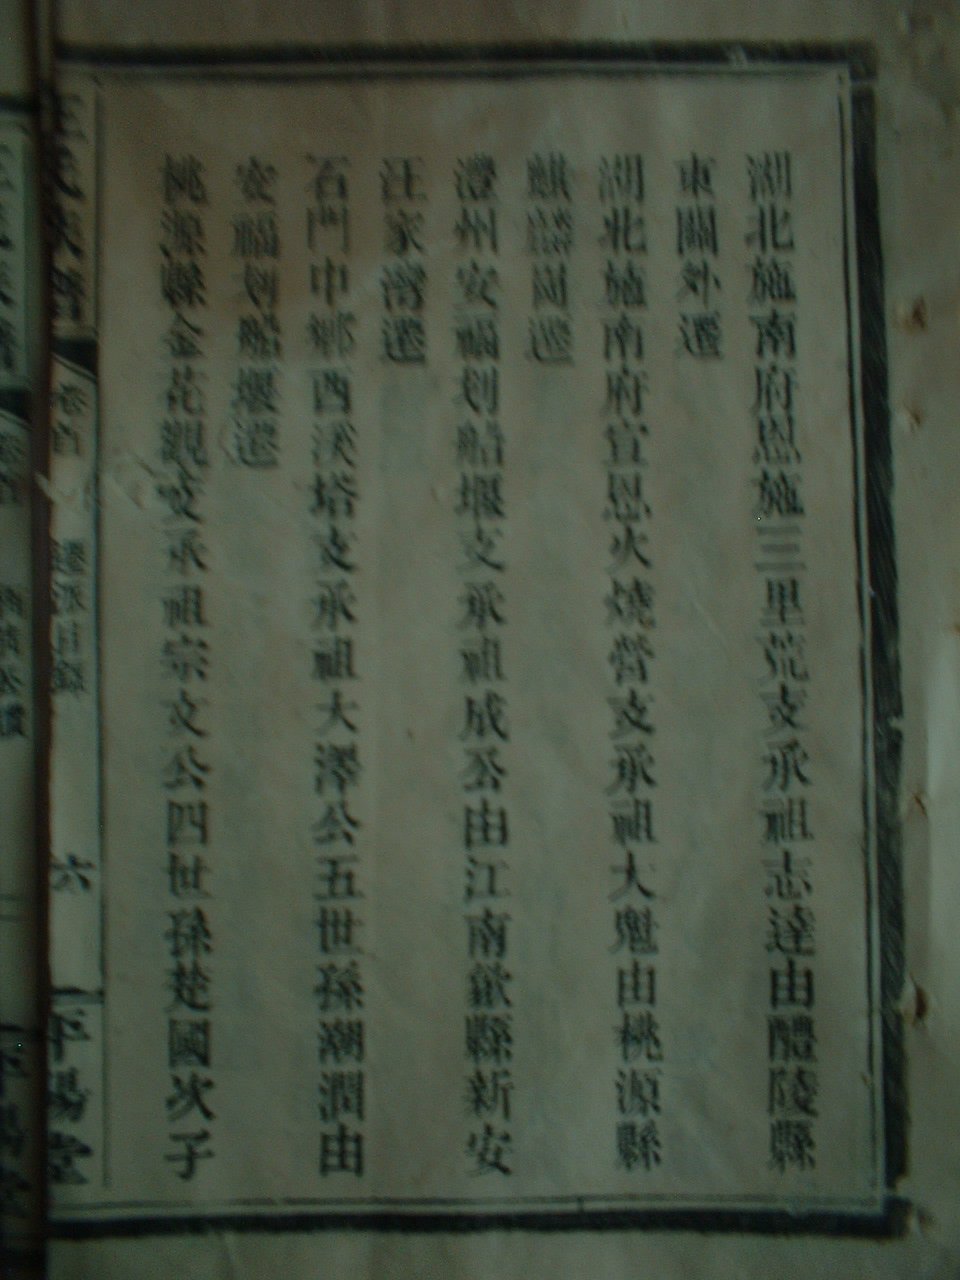 湖北施南府恩施三里荒支承祖志達由醴陵縣
東關外遷
湖北施南府宣恩火燒營支承祖大魁由桃源縣
麒麟崗遷
澧州安福划船堰支承祖成公由江南歙縣新安
汪家灣遷
石門中鄉酉溪塔支承祖大澤公五世孫潮潤由
安福划船堰遷
桃源縣金花觀支承祖宗文公四世孫楚國次子
汪氏家譜
卷首
遷派目錄
六
平陽堂